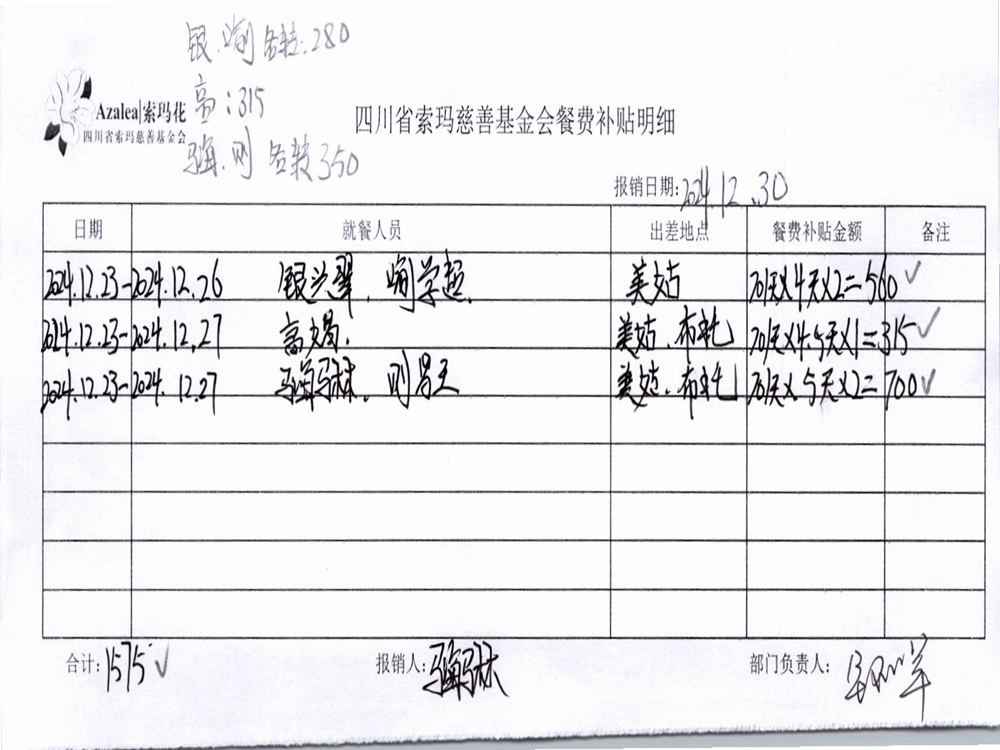 银. 各转:280
高:315
各转350
Azalea|索玛花
四川省索玛慈善基金会
四川省索玛慈善基金会餐费补贴明细
报销日期: 2024.12.30
日期 就餐人员 出差地点 餐费补贴金额 备注
2024.12.23-2024.12.26 美姑 70/天×4天×2=560 ✓
2024.12.23-2024.12.27 美姑.布拖 70/天×4.5天×1=315 ✓
2024.12.23-2024.12.27 美姑.布拖 70/天×5天×2=700 ✓
合计: 1575 ✓ 报销人: 部门负责人: